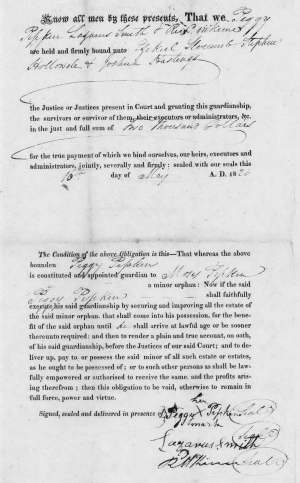 Know all men by these presents, That we Peggy
Pipkin Lazarus Smith &
are held and firmly bound unto Ezekiel Slocumb Stephen
Hollowell & Joshua Hastings
the Justice or Justices present in Court and granting this guardianship,
the survivors or survivor of them, their executors or administrators, &c.
in the just and full sum of two thousand dollars
for the true payment of which we bind ourselves, our heirs, executors and
administrators, jointly, severally and firmly: sealed with our seals this
day of May A. D. 182
The Condition of the above Obligation is this—That whereas the above
bounden Peggy Pipkin
is constituted and appointed guardian to Pipkin
a minor orphan: Now if the said
Peggy Pipkin shall faithfully
execute his said guardianship by securing and improving all the estate of
the said minor orphan that shall come into his possession, for the bene-
fit of the said orphan until he shall arrive at lawful age or be sooner
thereunto required: and then to render a plain and true account, on oath,
of his said guardianship, before the Justices of our said Court; and to de-
liver up, pay to, or possess the said minor of all such estate or estates,
as he ought to be possessed of; or to such other persons as shall be law-
fully empowered or authorised to receive the same, and the profits aris-
ing therefrom; then this obligation to be void, otherwise to remain in
full force, power and virtue.
Signed, sealed and delivered in presence of
her
Peggy X Pipkin Seal
mark
Lazarus Smith Seal
Seal